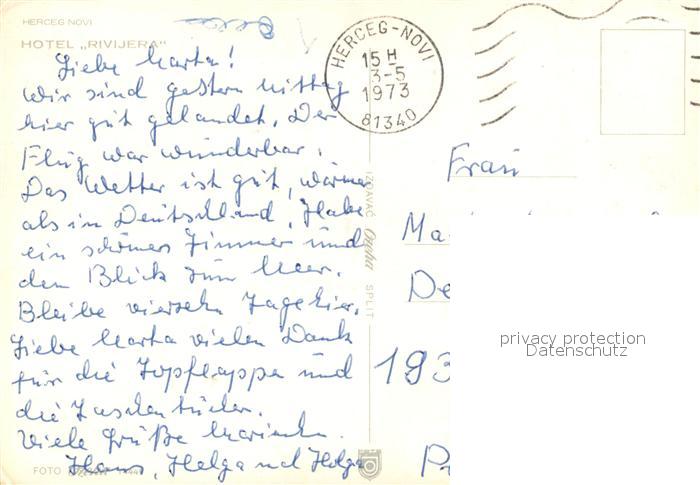 HERCEG NOVI
HOTEL „RIVIJERA"
Liebe Marta!
Wir sind gestern Mittag
hier gut gelandet. Der
Flug war wunderbar.
Das Wetter ist gut, wärmer
als in Deutschland. Habe
ein schönes Zimmer und
den Blick zum Meer.
Bleibe vierzehn Tage hier.
Liebe Marta vielen Dank
für die Topflappen und
die Taschentücher.
Viele Grüße
Hans, Helga und Holga
FOTO
HERCEG-NOVI
15 H
3-5
1973
81340
IZDAVAČ SPLIT
Frau
Ma
De
193
privacy protection
Datenschutz